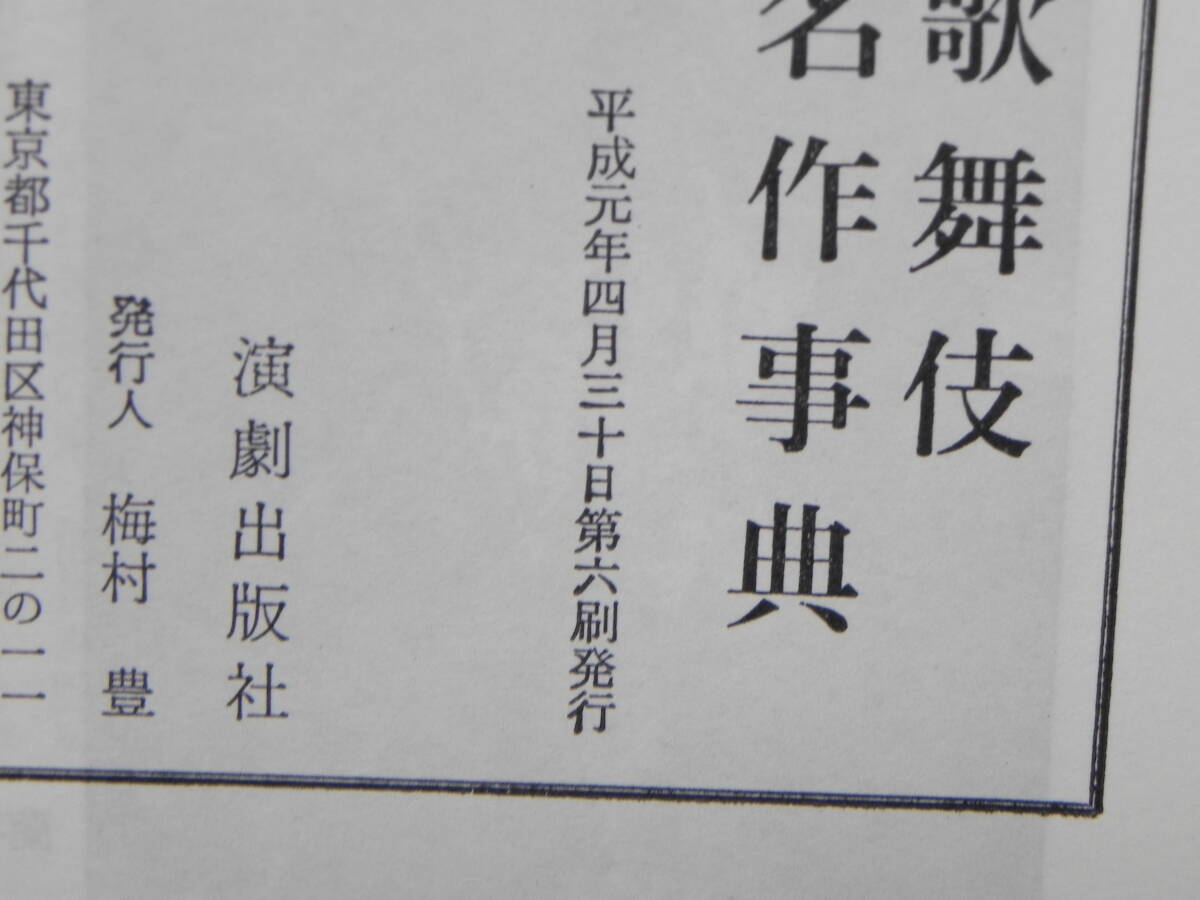 歌舞伎
名作事典
平成元年四月三十日第六刷発行
演劇出版社
発行人 梅村 豊
東京都千代田区神保町二の一一